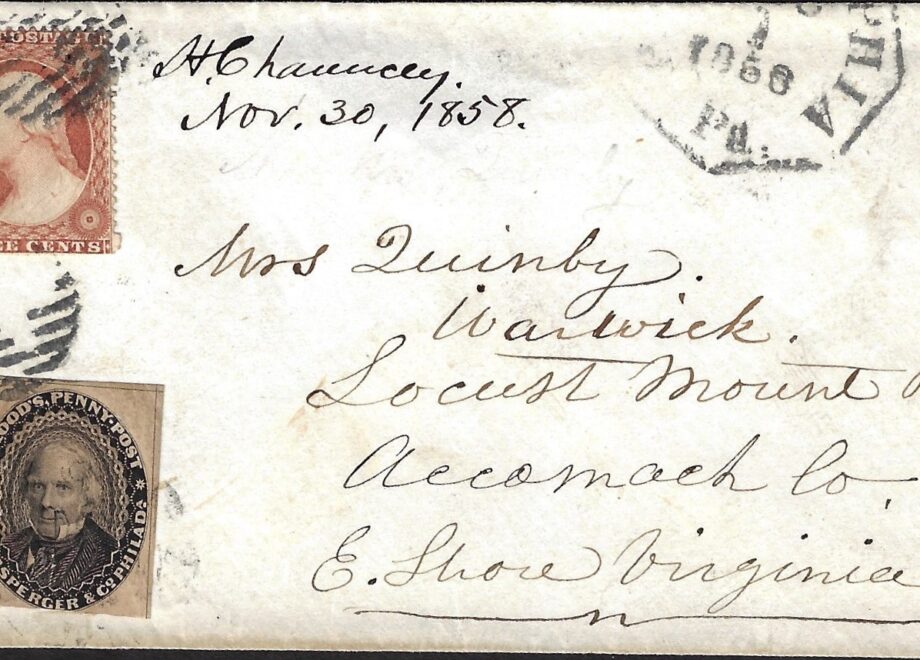 POSTAGE
EE CENTS
H. Chauncey.
Nov. 30, 1858.
PHIA
1858
Pa.
Mrs Quinby.
Warwick.
Locust Mount
Accomack Co,
E. Shore Virginia
OOD'S, PENNY-POST
SPERGER & Co PHILADA